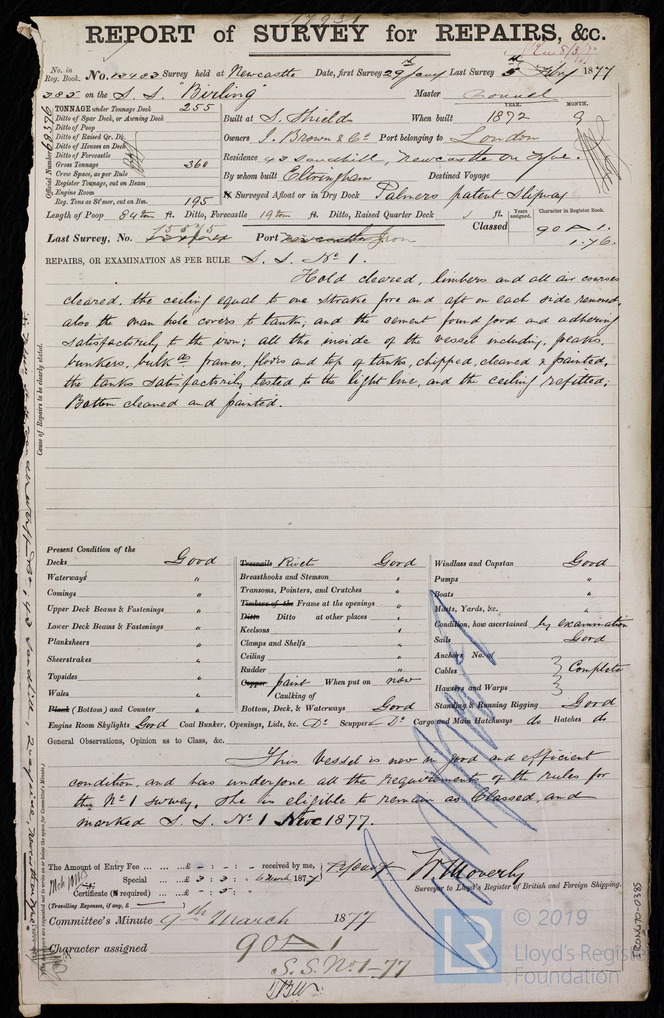 REPORT of SURVEY for REPAIRS, &c.
No. in Reg. Book. No. 13403 Survey held at Newcastle Date, first Survey 29th Jany Last Survey 5th 1877
385 on the S. S. "Birling" Master
TONNAGE under Tonnage Deck 255
Ditto of Spar Deck, or Awning Deck
Ditto of Poop
Ditto of Raised Qr. Dk.
Ditto of Houses on Deck
Ditto of Forecastle
Gross Tonnage 360
Crew Space, as per Rule
Register Tonnage, cut on Beam
Engine Room
Reg. Tons as St'mer, cut on Bm. 195
Official Number 68376
YEAR. MONTH.
Built at S. Shields When built 1872 9
Owners J. Brown & Co Port belonging to London
Residence 42 Sandhill, Newcastle on Tyne.
By whom built Eltringham Destined Voyage
Surveyed Afloat or in Dry Dock Palmers patent Slipway
Length of Poop 84 ft. Ditto, Forecastle 19 ft. Ditto, Raised Quarter Deck ft.
Years assigned. Character in Register Book.
Classed 90 A 1.
1.76.
Last Survey, No. Port Iron
REPAIRS, OR EXAMINATION AS PER RULE S. S. No 1.
Hold cleared, limbers and all air courses
cleared, the ceiling equal to one strake fore and aft on each side removed,
also the man hole covers to tanks; and the cement found good and adhering
satisfactorily to the iron; all the inside of the vessel including, peaks,
bunkers, bulk hds frames, floors and top of tanks, chipped, cleaned & painted,
the tanks satisfactorily tested to the light line, and the ceiling refitted;
Bottom cleaned and painted.
Cause of Repairs to be clearly stated.
Present Condition of the
Decks Good
Waterways "
Comings "
Upper Deck Beams & Fastenings "
Lower Deck Beams & Fastenings "
Planksheers "
Sheerstrakes "
Topsides "
Wales "
Plank (Bottom) and Counter "
Treenails Rivets Good
Breasthooks and Stemson "
Transoms, Pointers, and Crutches "
Timbers of the Frame at the openings "
Ditto Ditto at other places "
Keelsons "
Clamps and Shelfs "
Ceiling "
Rudder "
Copper paint When put on now
Caulking of
Bottom, Deck, & Waterways Good
Windlass and Capstan Good
Pumps "
Boats "
Masts, Yards, &c. "
Condition, how ascertained by examination
Sails Good
Anchors No. of
Cables Complete
Hawsers and Warps
Standing & Running Rigging Good
Engine Room Skylights Good Coal Bunker, Openings, Lids, &c. Do Scuppers Do Cargo and Main Hatchways do Hatches do
General Observations, Opinion as to Class, &c.
This vessel is now in good and efficient
condition, and has undergone all the requirements of the rules for
the No 1 survey, she is eligible to remain as Classed, and
marked S. S. No 1 1877.
The Amount of Entry Fee ... ... £ - : - : - received by me,
Special ... ... £ 3 : 3 : - 6 March 1877
Certificate (if required) ... £ - : 5 : -
(Travelling Expenses, if any, £ )
W Moverly
Surveyor to Lloyd's Register of British and Foreign Shipping.
Committee's Minute 9th March 1877
Character assigned 90 A 1
S.S. No 1-77
© 2019
LR
Lloyd's Register
Foundation
IRON670-0385